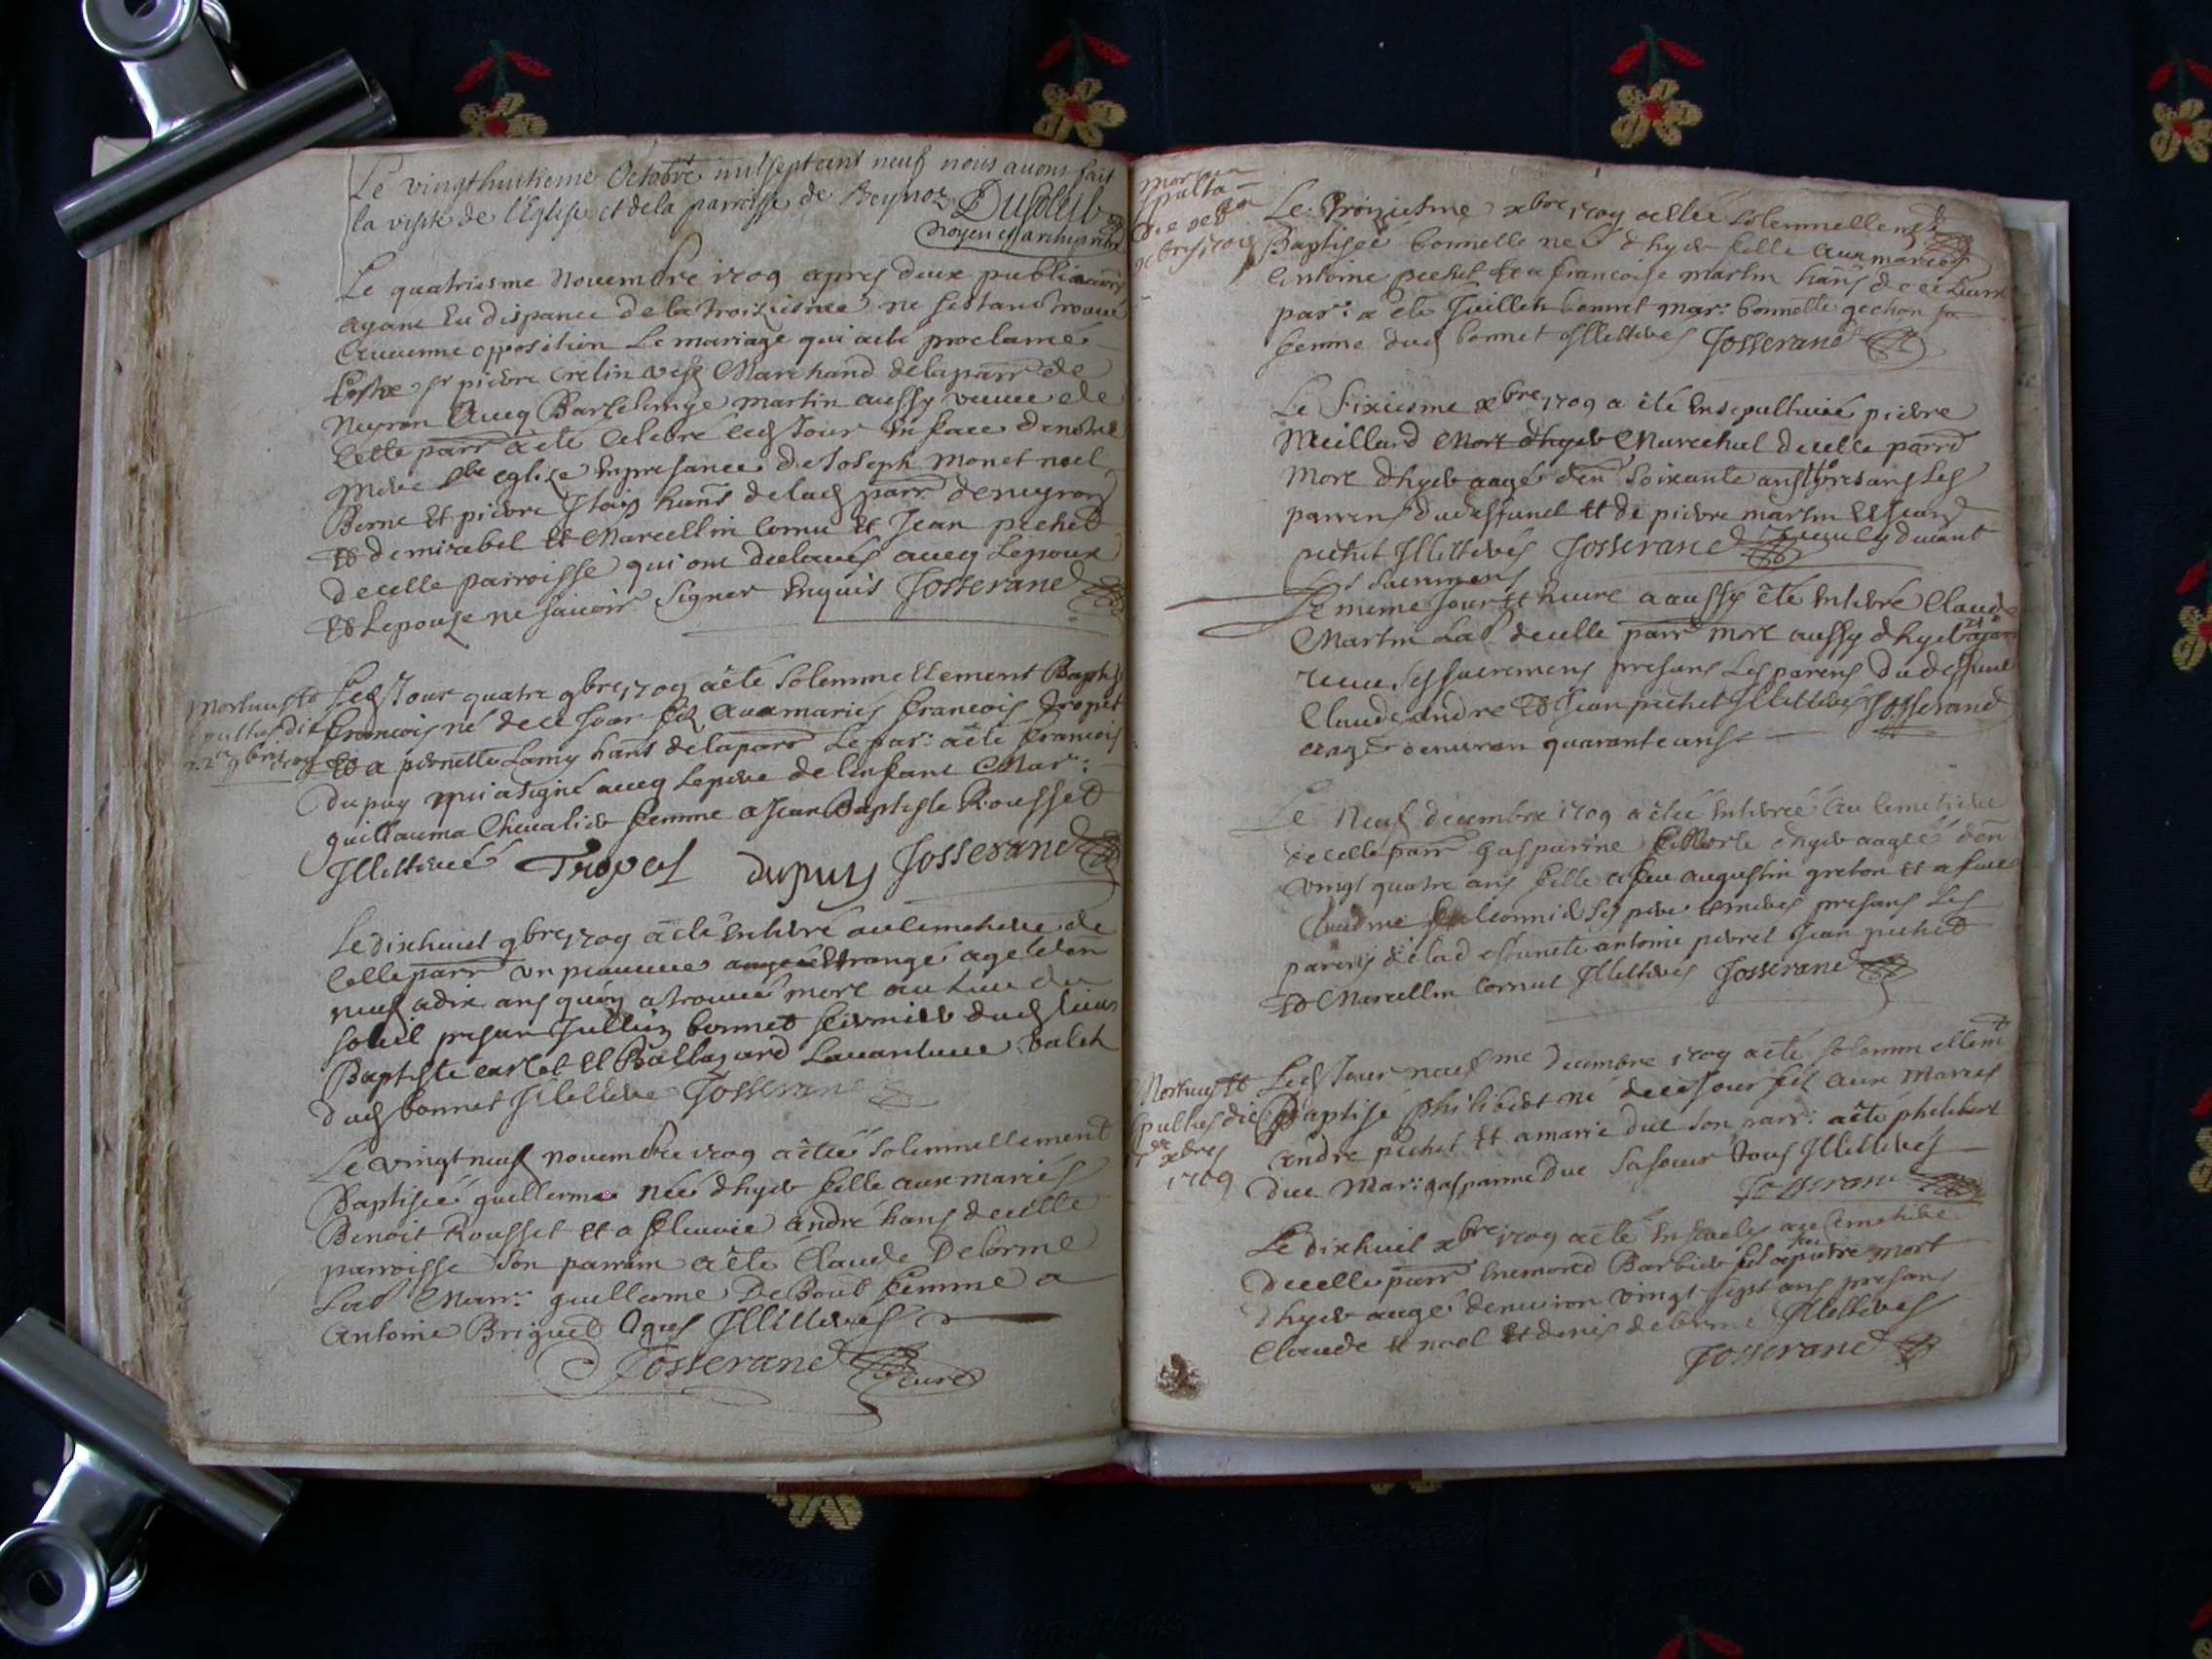 Le vingthuitieme Octobre mil sept cens neuf nous avons fait
la visite de l'Eglise et de la parroisse de Beynoz Dusoleil
Doyen et archiprêtre
Le quatriesme Novembre 1709 apres deux publica[ti]ons
ayant Eu dispance de la troiziesme ne sestant trouvé
Aucunne opposition Le mariage qui a êté proclamé
Entre sr pierre Crelin vesf Marchand de la parr de
Neyron Avecq Barthelemye martin aussy veuve de
Celle parr a êté Celebré ced Jour En face de nostre
Mere Ste eglize En presance de Joseph monet noel
Berne Et pierre hans de lad parr de neyron
Et de mirabel Et Marcellin Cornu Et Jean pichet
de celle parroisse qui ont declarés avecq Lepoux
Et Lepouze ne scavoir signer Enquis Josserand
Mortuus Et
sepultus die
22a 9bris 1709
Led Jour quatre 9bre 1709 a êté solemnellement Baptisé
francois né de ce Jour fils Aux mariés francois Tropet
Et a pernette Lamy hans de la parr Le par: a êté francois
Dupuy qui a signé avecq Le pere de lenfant Mar:
guillauma Chevalier femme a Jean Baptiste Rousset
Illitteré Tropet dupuis Josserand
Le dixhuict 9bre 1709 a êté Enterré au Cimetiere de
Celle parr Un pauvre Etrangé agé den
neuf a dix ans quon a trouvé mort au Lieu du
soleil presans Jullien bonnet fermier dud Lieu
Baptiste Et Baltazard Lavanture Valet
dud bonnet Illitteré Josserand
Le Vingt neuf novembre 1709 a êtée solemnellement
Baptisée guillerme Née dhyer fille aux mariés
Benoit Rousset Et a fleurie André hans de celle
parroisse Son parrain a êté Claude Delorme
Lab Marr: guillerme De Bout femme a
Antoine Briguet Illitterés
Josserand curé
Mortua
sepulta
die
xbris 1709
Le Troiziesme xbre 1709 a êtée solemnellemt
Baptiséé bonnette née dhyer fille Aux mariés
Antoine pichet Et a francoise martin hans de celle
par: a êté Juillien bonnet mar: bonnette gochon sa
femme dud bonnet Illitterés Josserand
Le sixiesme xbre 1709 a êté Ensepulturé pierre
Meillard Marechal de celle parr
mort dhyer aagé den soixante ans presans Les
parrens du deffunct Et de pierre martin Et Jean
pichet Illitterés Josserand
Le meme Jour Et heure a aussy êté Enterré Claude
Martin Lab de celle parr mort aussy dhyer ayant
receu Ses sacremens presans Les parens du deffunct
Claude andre Et Jean pichet Illitterés Josserand
et agé denviron quarante ans
Le Neuf decembre 1709 a êtéé Enterréé Au Cimetiere
de celle parr gasparine morte dhyer aagéé den
vingt quatre ans fille a feu augustin greton Et a feue
ses pere Et mere presans Les
parens de la deffuncte antoine perret Jean pichet
Et Marcellin Cornut Illitterés Josserand
Mortuus Et
sepultus die
xbris
1709
Led Jour neufme Decembre 1709 a êté solemnellemt
Baptisé philibert né de ce Jour fils Aux Mariés
Andre pichet Et a marie Duc son parr: a êté philibert
Duc Mar: gasparine Duc sa soeur tous Illitterés
Josserand
Le dixhuit xbre 1709 a êté au Cimetiere
de celle parr Enemond Barbier fils a feu pierre mort
dhyer aagé denviron vingt sept ans presans
Claude Et noel Et denis delorme Illitterés
Josserand